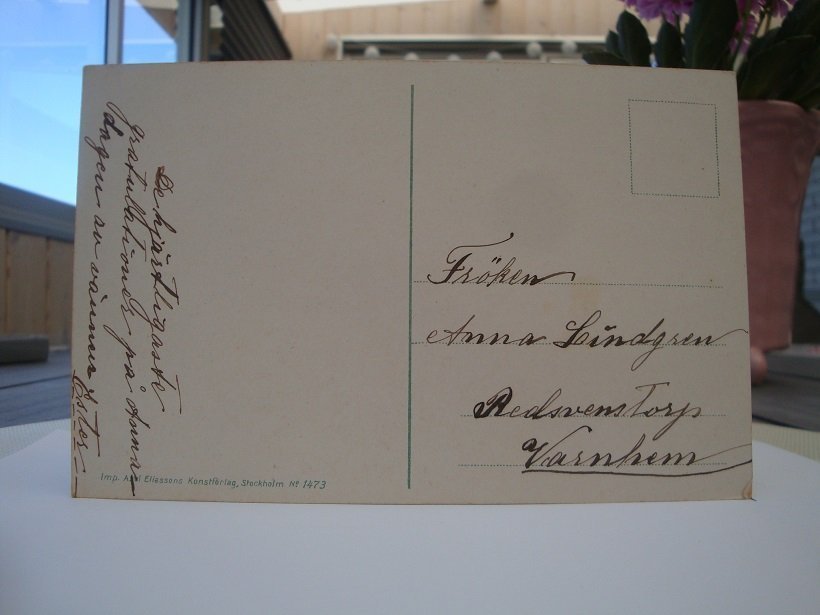 De hjärtligaste
gratulationer på Anna
dagen av vännen Ester
Fröken
Anna Lindgren
Redsvenstorp
Varnhem
Imp. Axel Eliassons Konstförlag, Stockholm Nº 1473